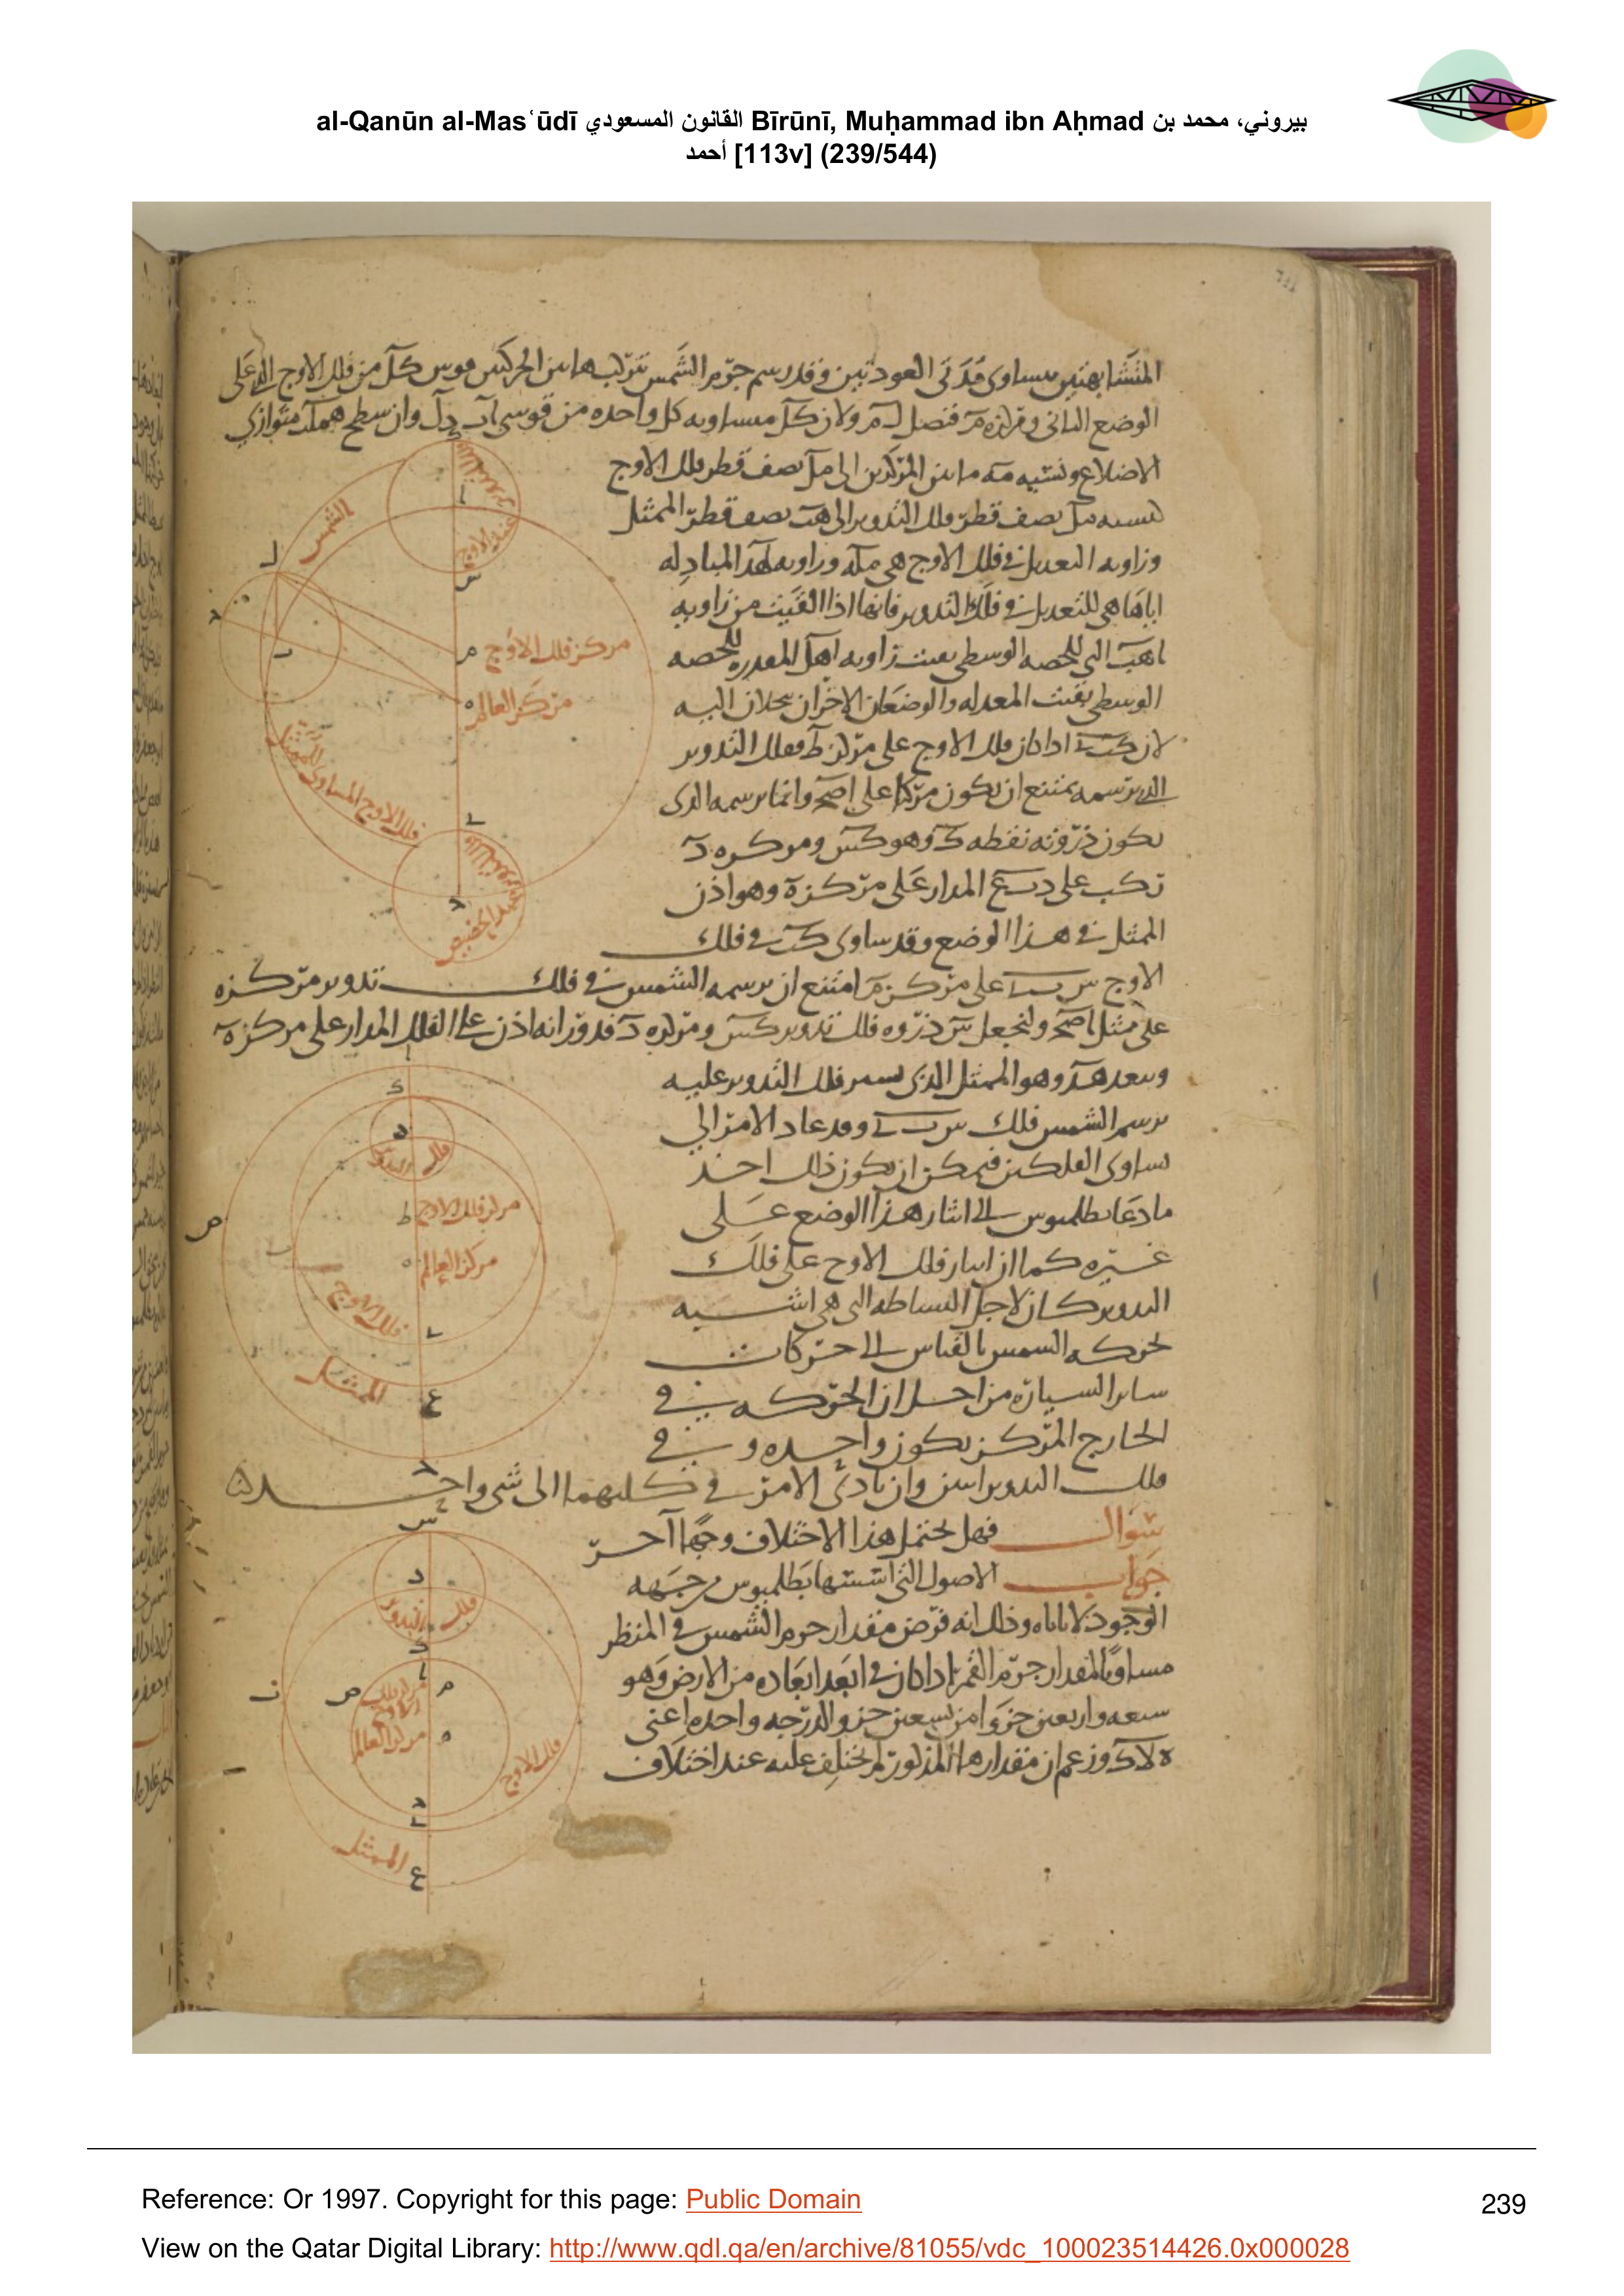 al-Qanūn al-Masʿūdī القانون المسعودي Bīrūnī, Muḥammad ibn Aḥmad بيروني، محمد بن
أحمد [113v] (239/544)
المتشابهتين بتساوى مدتى العودتين وقد رسم جرم الشمس بتركبها من الحركتين قوس كل من فلك الاوج الذى على
الوضع الثانى ومركزه م فنصل ل م ولان كل مساويه كل واحده من قوسى اب د ل وان سطح ه م ل متوازى
الاضلاع ونسبه م ه ما بين المركزين الى م ل نصف قطر فلك الاوج
كنسبه نصف قطر فلك التدوير الى ه ب نصف قطر الممثل
وزاويه التعديل فى فلك الاوج هى م ل ه وزاويه المبادله
اياها هى للتعديل فى فلك التدوير فانها اذا القيت من زاويه
ا ه ب التى للحصه الوسطى بقيت زاويه ا ه ل المعدله للحصه
الوسطى بقيت المعدله والوضعان الاخران يحلان اليه
لان اذا كان فلك الاوج على مركز ط ففلك التدوير
الذى يرسمه يمتنع ان يكون مركبا على وانما يرسمه الذى
يكون ذروته نقطه وهو ومركزه د
تركب على المدار على مركز ه وهو اذن
الممثل فى هذا الوضع وقد ساوى فى فلك
الاوج على مركز م امتنع ان يرسمه الشمس فى فلك تدوير مركزه
على ممثل ولنجعل س ذروه فلك تدوير ومركزه د فدورانه اذن على الفلك المدار على مركز ه
وببعد ه د وهو الممثل الذى يسير فلك التدوير عليه
يرسم الشمس فلك وقد عاد الامر الى
تساوى الفلكين فيمكن ان يكون ذلك احد
ما دعا بطلميوس الى ايثار هذا الوضع على
غيره كما ان ايثار فلك الاوج على فلك
التدوير كان لاجل البساطه التى هى اشبه
بحركه الشمس بالقياس الى حركات
ساير السياره من اجل ان الحركه فى
الخارج المركز يكون واحده وفى
فلك التدوير اثنين وان تادى الامر فى كليهما الى شى واحد
سؤال فهل يحتمل هذا الاختلاف وجها آخر
جواب الاصول التى اسسها بطلميوس من جهه
الوجود لا تاباه وذلك انه فرض مقدار جرم الشمس فى المنظر
مساويا لمقدار جرم القمر اذا كان فى ابعد ابعاده من الارض وهو
سبعه واربعين جزوا من تسعين جزو الدرجه واحده اعنى
وزعم ان مقدارها المذكور لم يختلف عليه عند اختلاف
الشمس
مركز فلك الاوج
مركز العالم
فلك الاوج المساوى للممثل
فلك التدوير
مركز فلك الاوج
مركز العالم
فلك الاوج
الممثل
فلك التدوير
مركز فلك الاوج
مركز العالم
فلك الاوج
الممثل
Reference: Or 1997. Copyright for this page: Public Domain
239
View on the Qatar Digital Library: http://www.qdl.qa/en/archive/81055/vdc_100023514426.0x000028